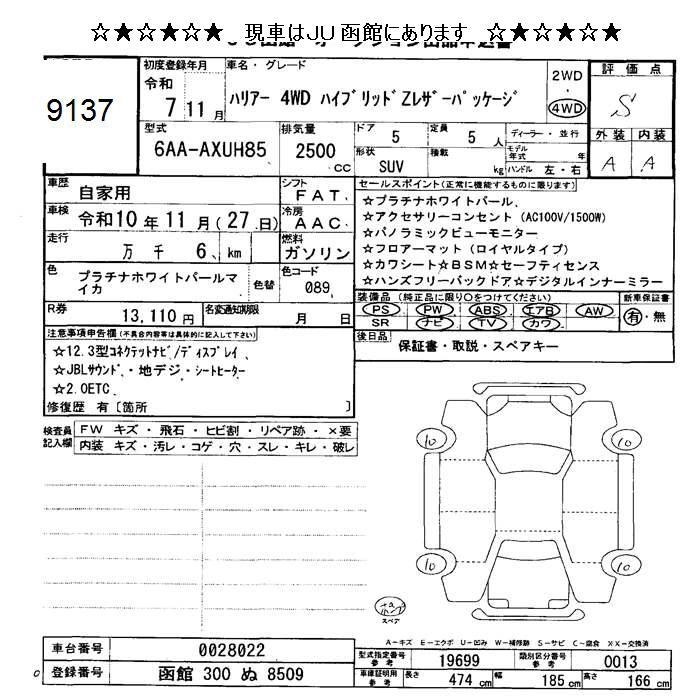 ☆★☆★☆★ 現車はJU函館にあります ☆★☆★☆★
9137
初度登録年月
令和
7 11 月
車名・グレード
ハリアー 4WD ハイブリッドZレザーパッケージ
2WD
4WD
評価点
S
外装 内装
A A
型式
6AA-AXUH85
排気量
2500
CC
ドア
5
定員
5
人
形状
SUV
積載
kg
ディーラー・並行
モデル
年式 年
ハンドル 左・右
車歴
自家用
シフト
FAT
車検
令和10年11月(27日)
冷房
AAC
走行
万 千 6 km
燃料
ガソリン
色
プラチナホワイトパールマ
イカ
色替
色コード
089
R券
13,110 円
名変通知期限
月 日
セールスポイント(正常に機能するものに限ります)
☆プラチナホワイトパール、
☆アクセサリーコンセント(AC100V/1500W)
☆パノラミックビューモニター
☆フロアーマット(ロイヤルタイプ)
☆カワシート☆BSM☆セーフティセンス
☆ハンズフリーバックドア☆デジタルインナーミラー
装備品(純正品に限り○をつけてください)
PS PW ABS エアB AW
SR ナビ TV カワ
新車保証書
有・無
後日品
保証書・取説・スペアキー
注意事項申告欄(不具合内容等は具体的に記入して下さい)
☆12.3型コネクテットナビ/ディスプレイ
☆JBLサウンド・地デジ・シートヒーター
☆2.0ETC
修復歴 有〔箇所 〕
検査員
記入欄
FW キズ・飛石・ヒビ割・リペア跡・×要
内装 キズ・汚レ・コゲ・穴・スレ・キレ・破レ
10 10
10 10
スペア
A-キズ E-エクボ U-凹み W-補修跡 S-サビ C-腐食 XX-交換済
車台番号
0028022
登録番号
函館 300 ぬ 8509
型式指定番号
参考
19699
類別区分番号
参考
0013
車庫証明用
参考
長さ
474 cm
幅
185 cm
高さ
166 cm